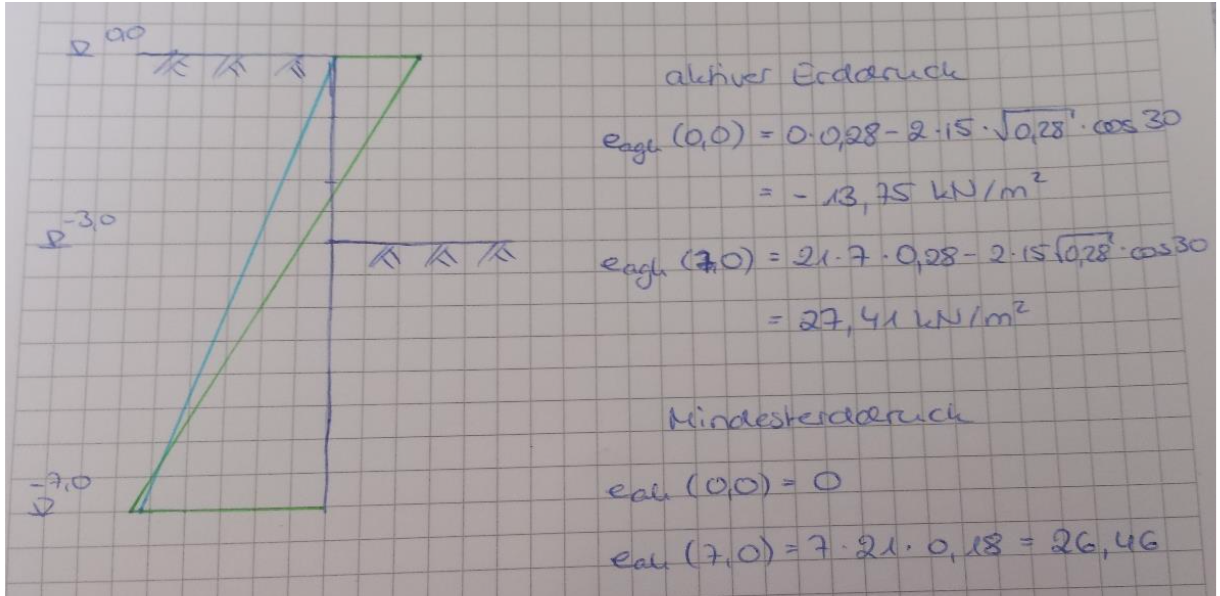 0,0
aktiver Erddruck
eagh (0,0) = 0·0,28 - 2·15·√0,28·cos 30
= - 13,75 kN/m²
-3,0
eagh (7,0) = 21·7·0,28 - 2·15√0,28·cos 30
= 27,41 kN/m²
Mindesterddruck
-7,0
eah (0,0) = 0
eah (7,0) = 7·21·0,18 = 26,46